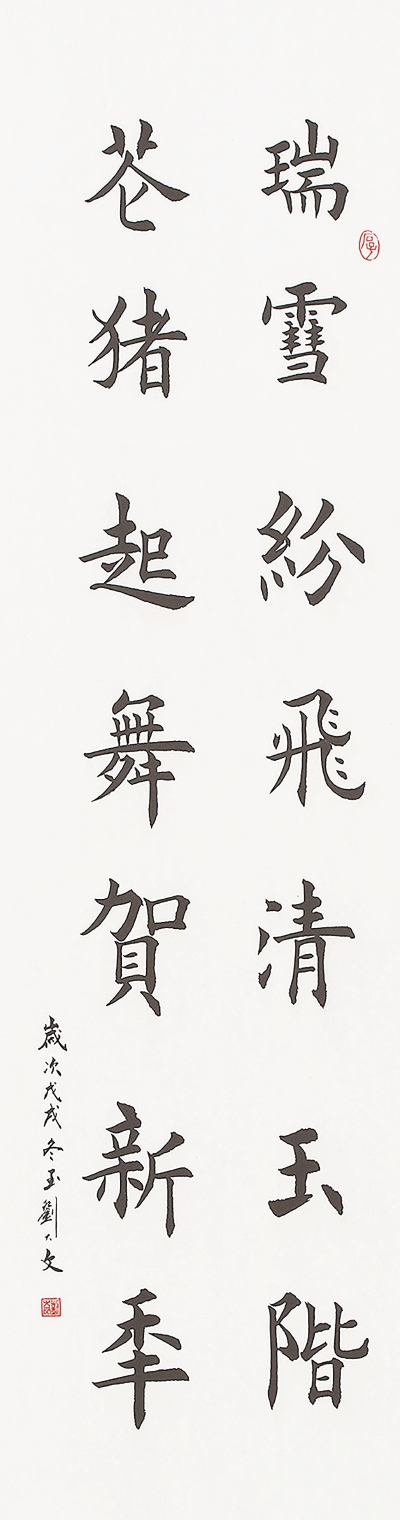 瑞雪紛飛清玉階
芲猪起舞賀新秊
歲次戊戌冬至劉大文